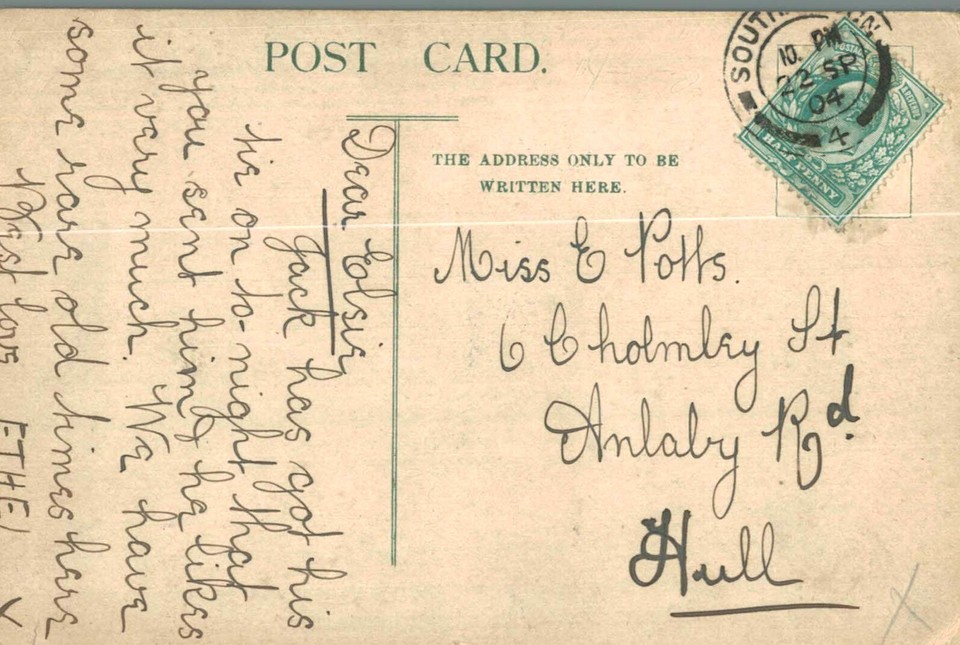 POST CARD.
THE ADDRESS ONLY TO BE
WRITTEN HERE.
10. PM
22 SP
04
4
HALFPENNY
Miss E Potts.
6 Cholmley St
Anlaby Rd.
Hull
Dear Elsie
Jack has got his
tie on to-night that
you sent him & he likes
it very much. We have
some rare old times here
Best love ETHEL X